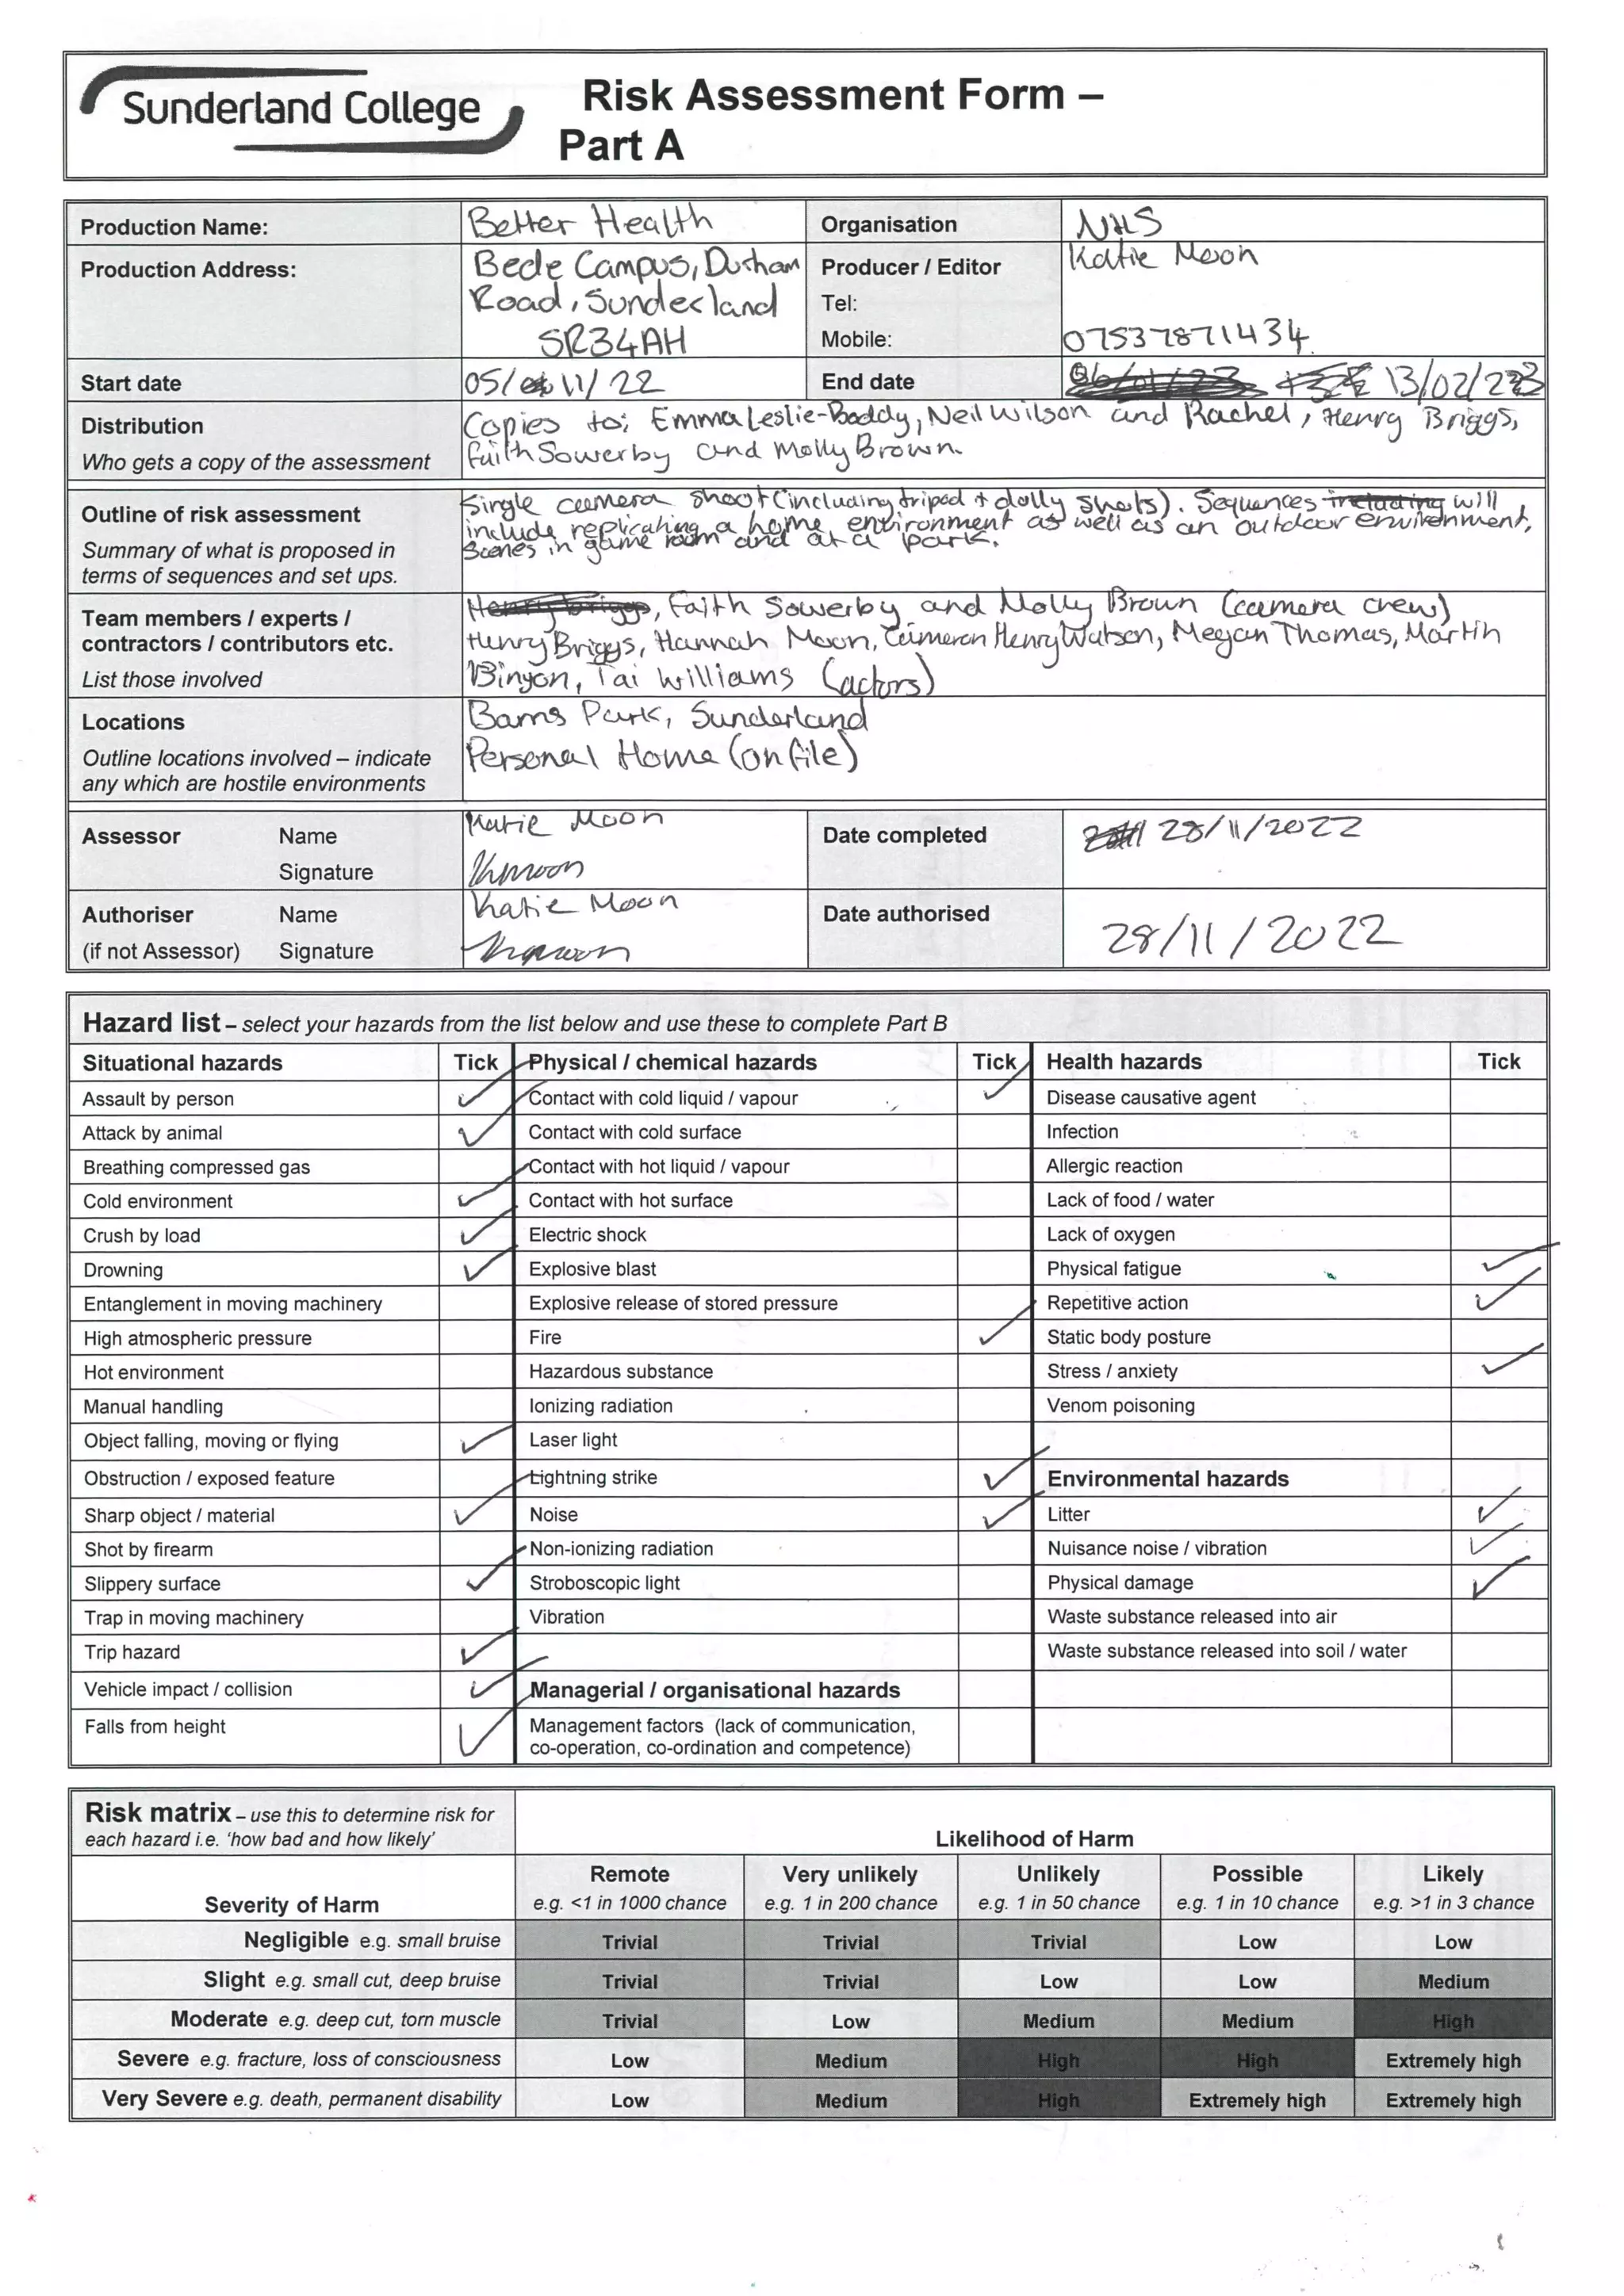 Sunderland College
Risk Assessment Form –
Part A
Production Name: Better Health Organisation NHS
Production Address: Bede Campus, Durham Producer / Editor Katie Moon
Road, Sunderland Tel:
SR34AH Mobile: 07537871434
Start date 05/ 11/ 22 End date 13/02/23
Distribution Copies to; Emma Leslie-Boddy, Neil Wilson and Rachel, Henry Briggs,
Who gets a copy of the assessment Faith Sowerby and Molly Brown.
Outline of risk assessment Single camera shoot (including tripod + dolly shots). Sequences including will
Summary of what is proposed in include replicating a home environment as well as an outdoor environment,
terms of sequences and set ups. Scenes in game room and at a park.
Team members / experts / Henry briggs, Faith Sowerby and Molly Brown (camera crew)
contractors / contributors etc. Henry Briggs, Hannah Moon, Cameron Henry Watson, Megan Thomas, Martin
List those involved Binyon, Tai Williams (actors)
Locations Barns Park, Sunderland
Outline locations involved – indicate Personal Home (on file)
any which are hostile environments
Assessor Name Katie Moon Date completed 28/11/2022
Signature Kmoon
Authoriser Name Katie Moon Date authorised 28/11/2022
(if not Assessor) Signature
Hazard list – select your hazards from the list below and use these to complete Part B
Situational hazards Tick Physical / chemical hazards Tick Health hazards Tick
Assault by person ✓ Contact with cold liquid / vapour ✓ Disease causative agent
Attack by animal ✓ Contact with cold surface Infection
Breathing compressed gas Contact with hot liquid / vapour Allergic reaction
Cold environment ✓ Contact with hot surface Lack of food / water
Crush by load ✓ Electric shock Lack of oxygen
Drowning ✓ Explosive blast Physical fatigue ✓
Entanglement in moving machinery Explosive release of stored pressure Repetitive action ✓
High atmospheric pressure Fire ✓ Static body posture
Hot environment Hazardous substance Stress / anxiety ✓
Manual handling Ionizing radiation Venom poisoning
Object falling, moving or flying ✓ Laser light
Obstruction / exposed feature Lightning strike ✓ Environmental hazards
Sharp object / material ✓ Noise ✓ Litter ✓
Shot by firearm Non-ionizing radiation Nuisance noise / vibration ✓
Slippery surface ✓ Stroboscopic light Physical damage ✓
Trap in moving machinery Vibration Waste substance released into air
Trip hazard ✓ Waste substance released into soil / water
Vehicle impact / collision ✓ Managerial / organisational hazards
Falls from height ✓ Management factors (lack of communication,
co-operation, co-ordination and competence)
Risk matrix – use this to determine risk for
each hazard i.e. 'how bad and how likely' Likelihood of Harm
Remote Very unlikely Unlikely Possible Likely
Severity of Harm e.g. <1 in 1000 chance e.g. 1 in 200 chance e.g. 1 in 50 chance e.g. 1 in 10 chance e.g. >1 in 3 chance
Negligible e.g. small bruise Trivial Trivial Trivial Low Low
Slight e.g. small cut, deep bruise Trivial Trivial Low Low Medium
Moderate e.g. deep cut, torn muscle Trivial Low Medium Medium High
Severe e.g. fracture, loss of consciousness Low Medium High High Extremely high
Very Severe e.g. death, permanent disability Low Medium High Extremely high Extremely high